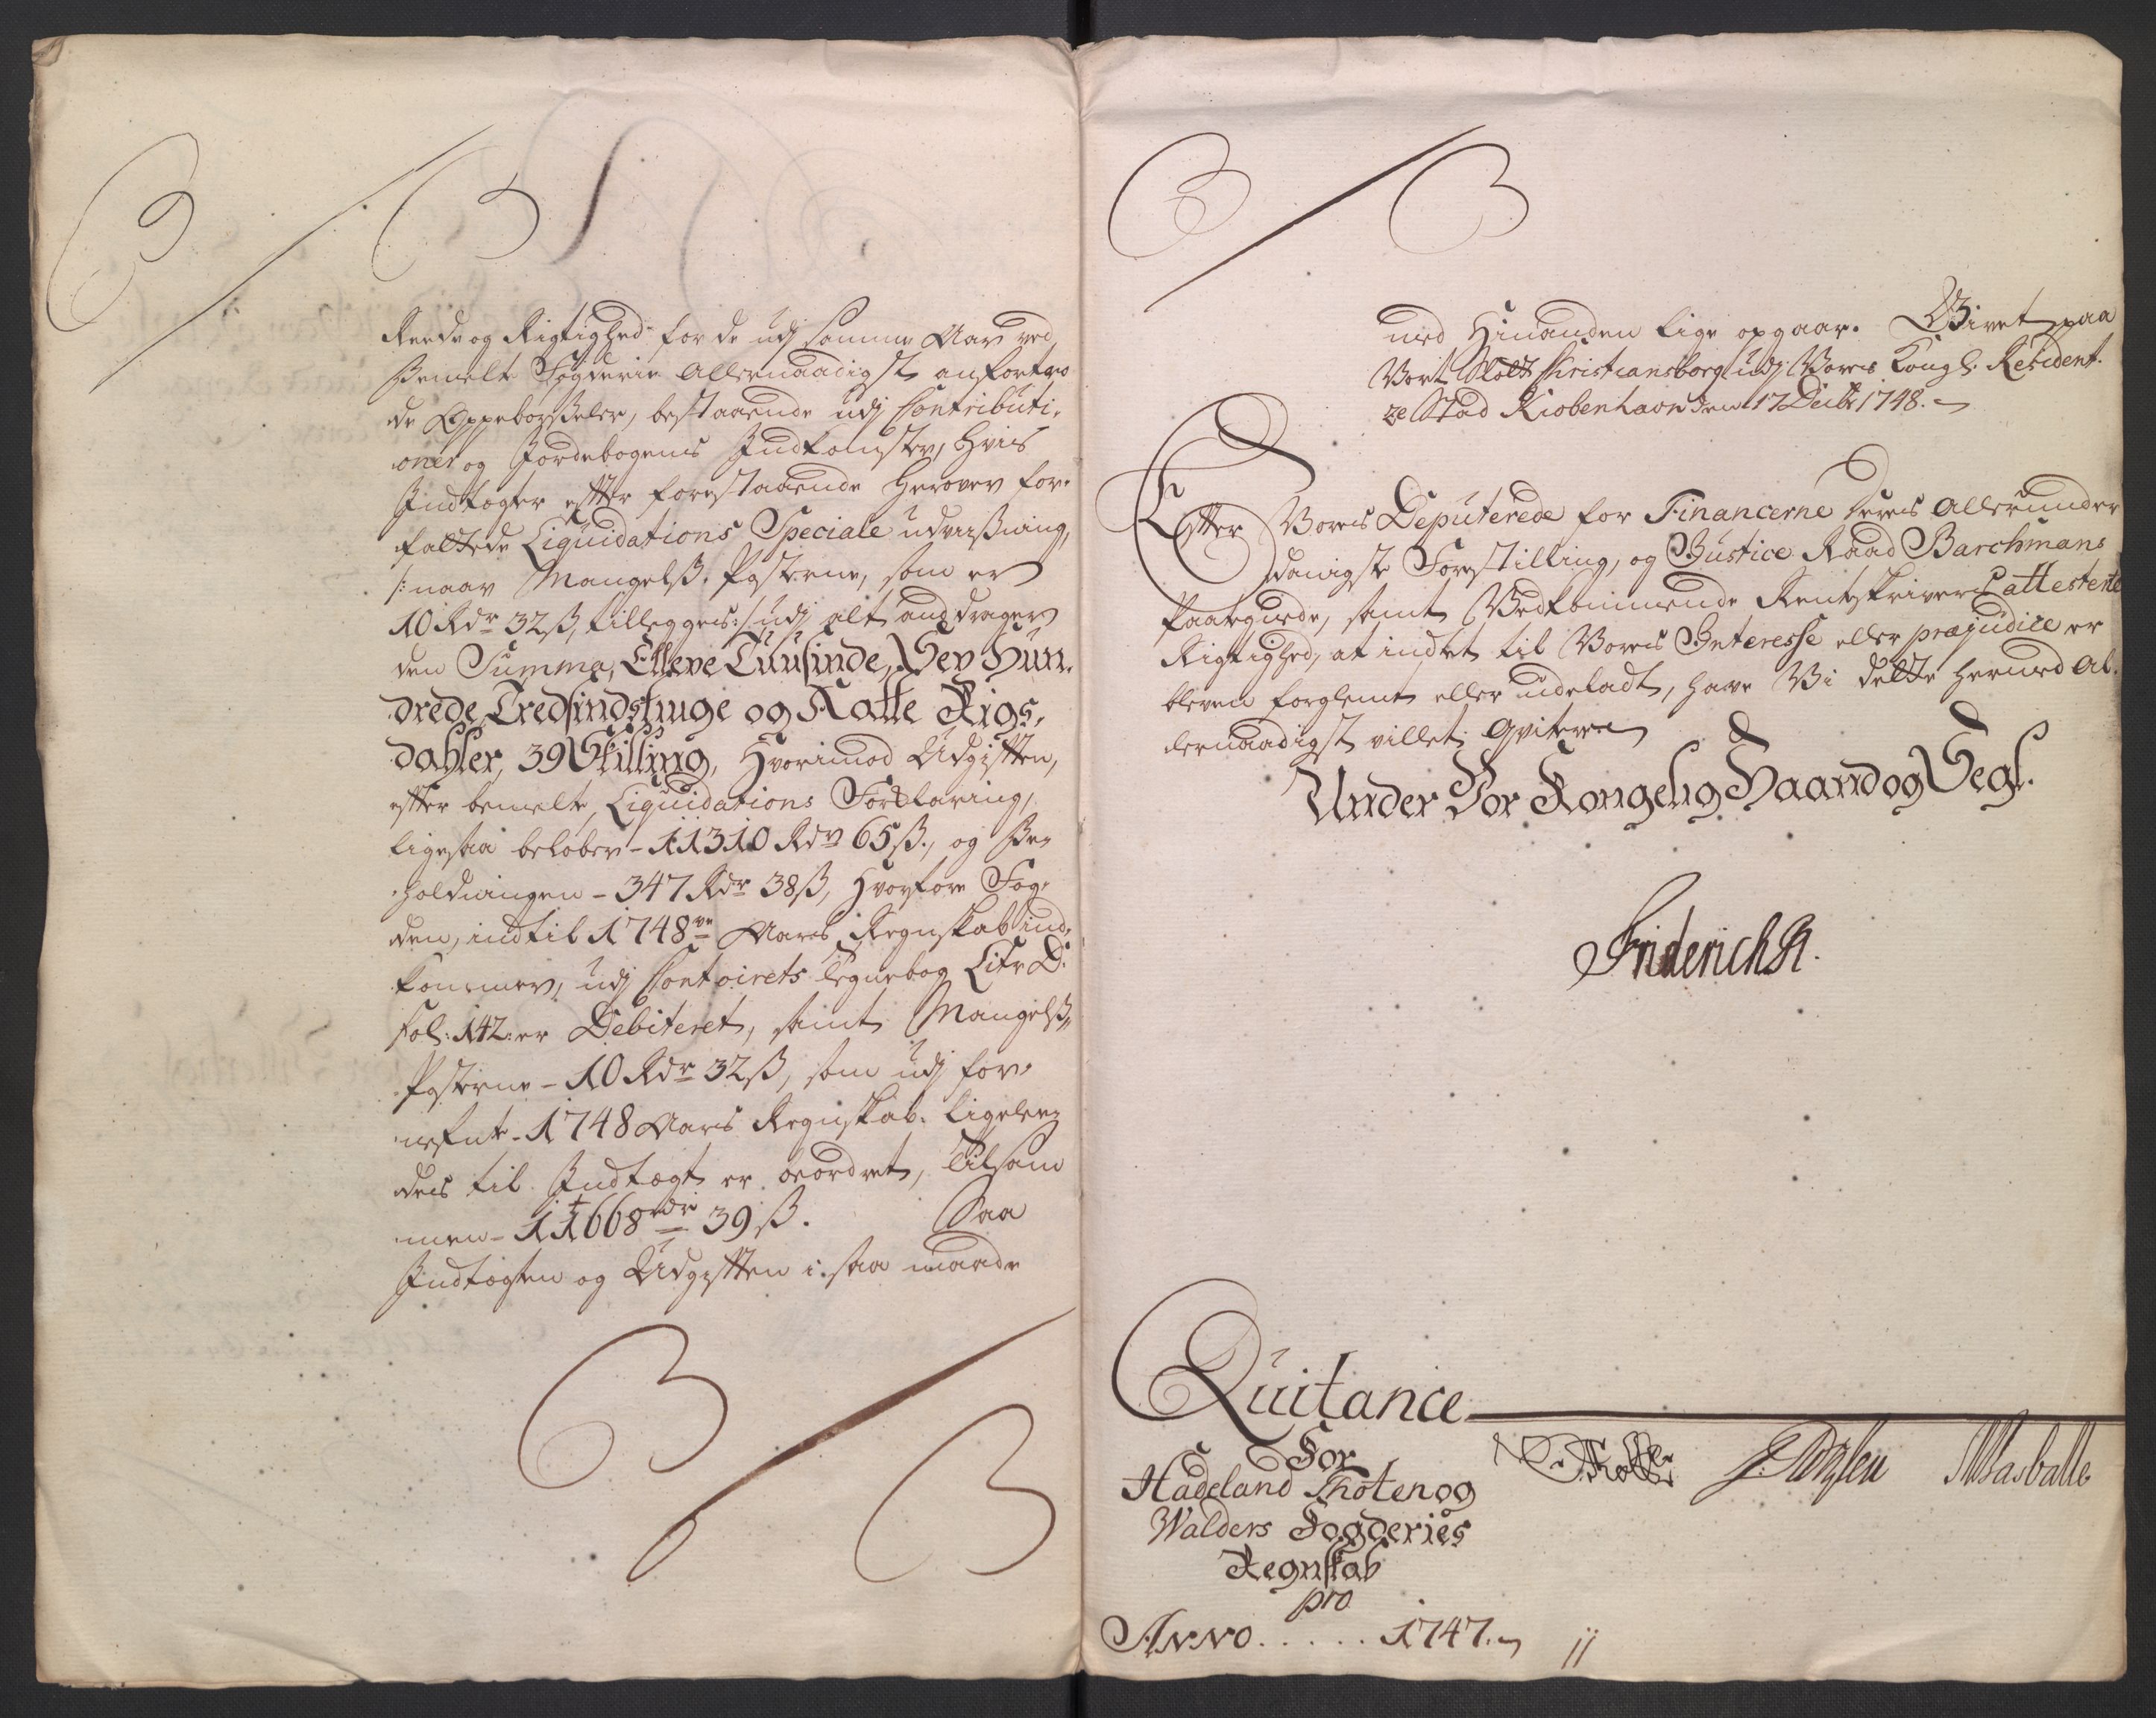 Reede og Rigtighed for de udj samme Aar ved
bemelte Fogderie Allernaadigst anfortro
de Oppebørseler, bestaaende udj Contributi-
oner og Jordebogens Indkomster, hvis
Indtægter efter forestaaende herover for-
fattede Liquidations Speciale udviisning,
/: naar Mangels Posterne, som er
10 Rdr 32 ß, tillegges :/ udj alt anddrager
den Summa, Elleve Tuusinde, Sex Hun-
drede Tredsindstiuge og Aatte Rigs-
dahler, 39 Skilling, Hvorimod Udgiften,
efter bemelte Liquidations Forklaring,
ligesaa beløber - 11310 Rdr 65 ß., og Be-
holdningen - 347 Rdr 38 ß, hvorfore Fog-
den, indtil 1748ve Aars Regnskab ind-
kommer, udj Contoirets Tegnebog Litr D:
Fol: 142: er Debiteret, samt Mangels
Posterne - 10 Rdr 32 ß, som udj for-
nefnte - 1748 Aars Regnskab ligelee-
des til Indtægt er beordret, Tilsam
men - 11668 rdr 39 ß. Saa
Indtægten og Udgiften i saa maade
med Hinanden lige opgaar. Givet paa
Vort Slott Christiansborg udj Vores Kongl: Resident-
ze Stad Kiøbenhavn den 17 Decbr 1748.
Efter Vores Deputerede for Financerne deres allerunder
danigste Forestilling, og Justice Raad Barchmans
Paategnede, samt Vedkommende Rentskrivers attesterte
Rigtighed, at indtet til Vores Interesse eller præjudice er
bleven forglemt eller udeladt, have Vi dette hermed Al-
lernaadigst villet Qvitere
Under Vor Kongelig Haand og Segl.
Friderich R.
Quitance
For
Hadeland Thoten og
Walders Fogderies
Regnskab
pro
Anno . . . . . 1747.